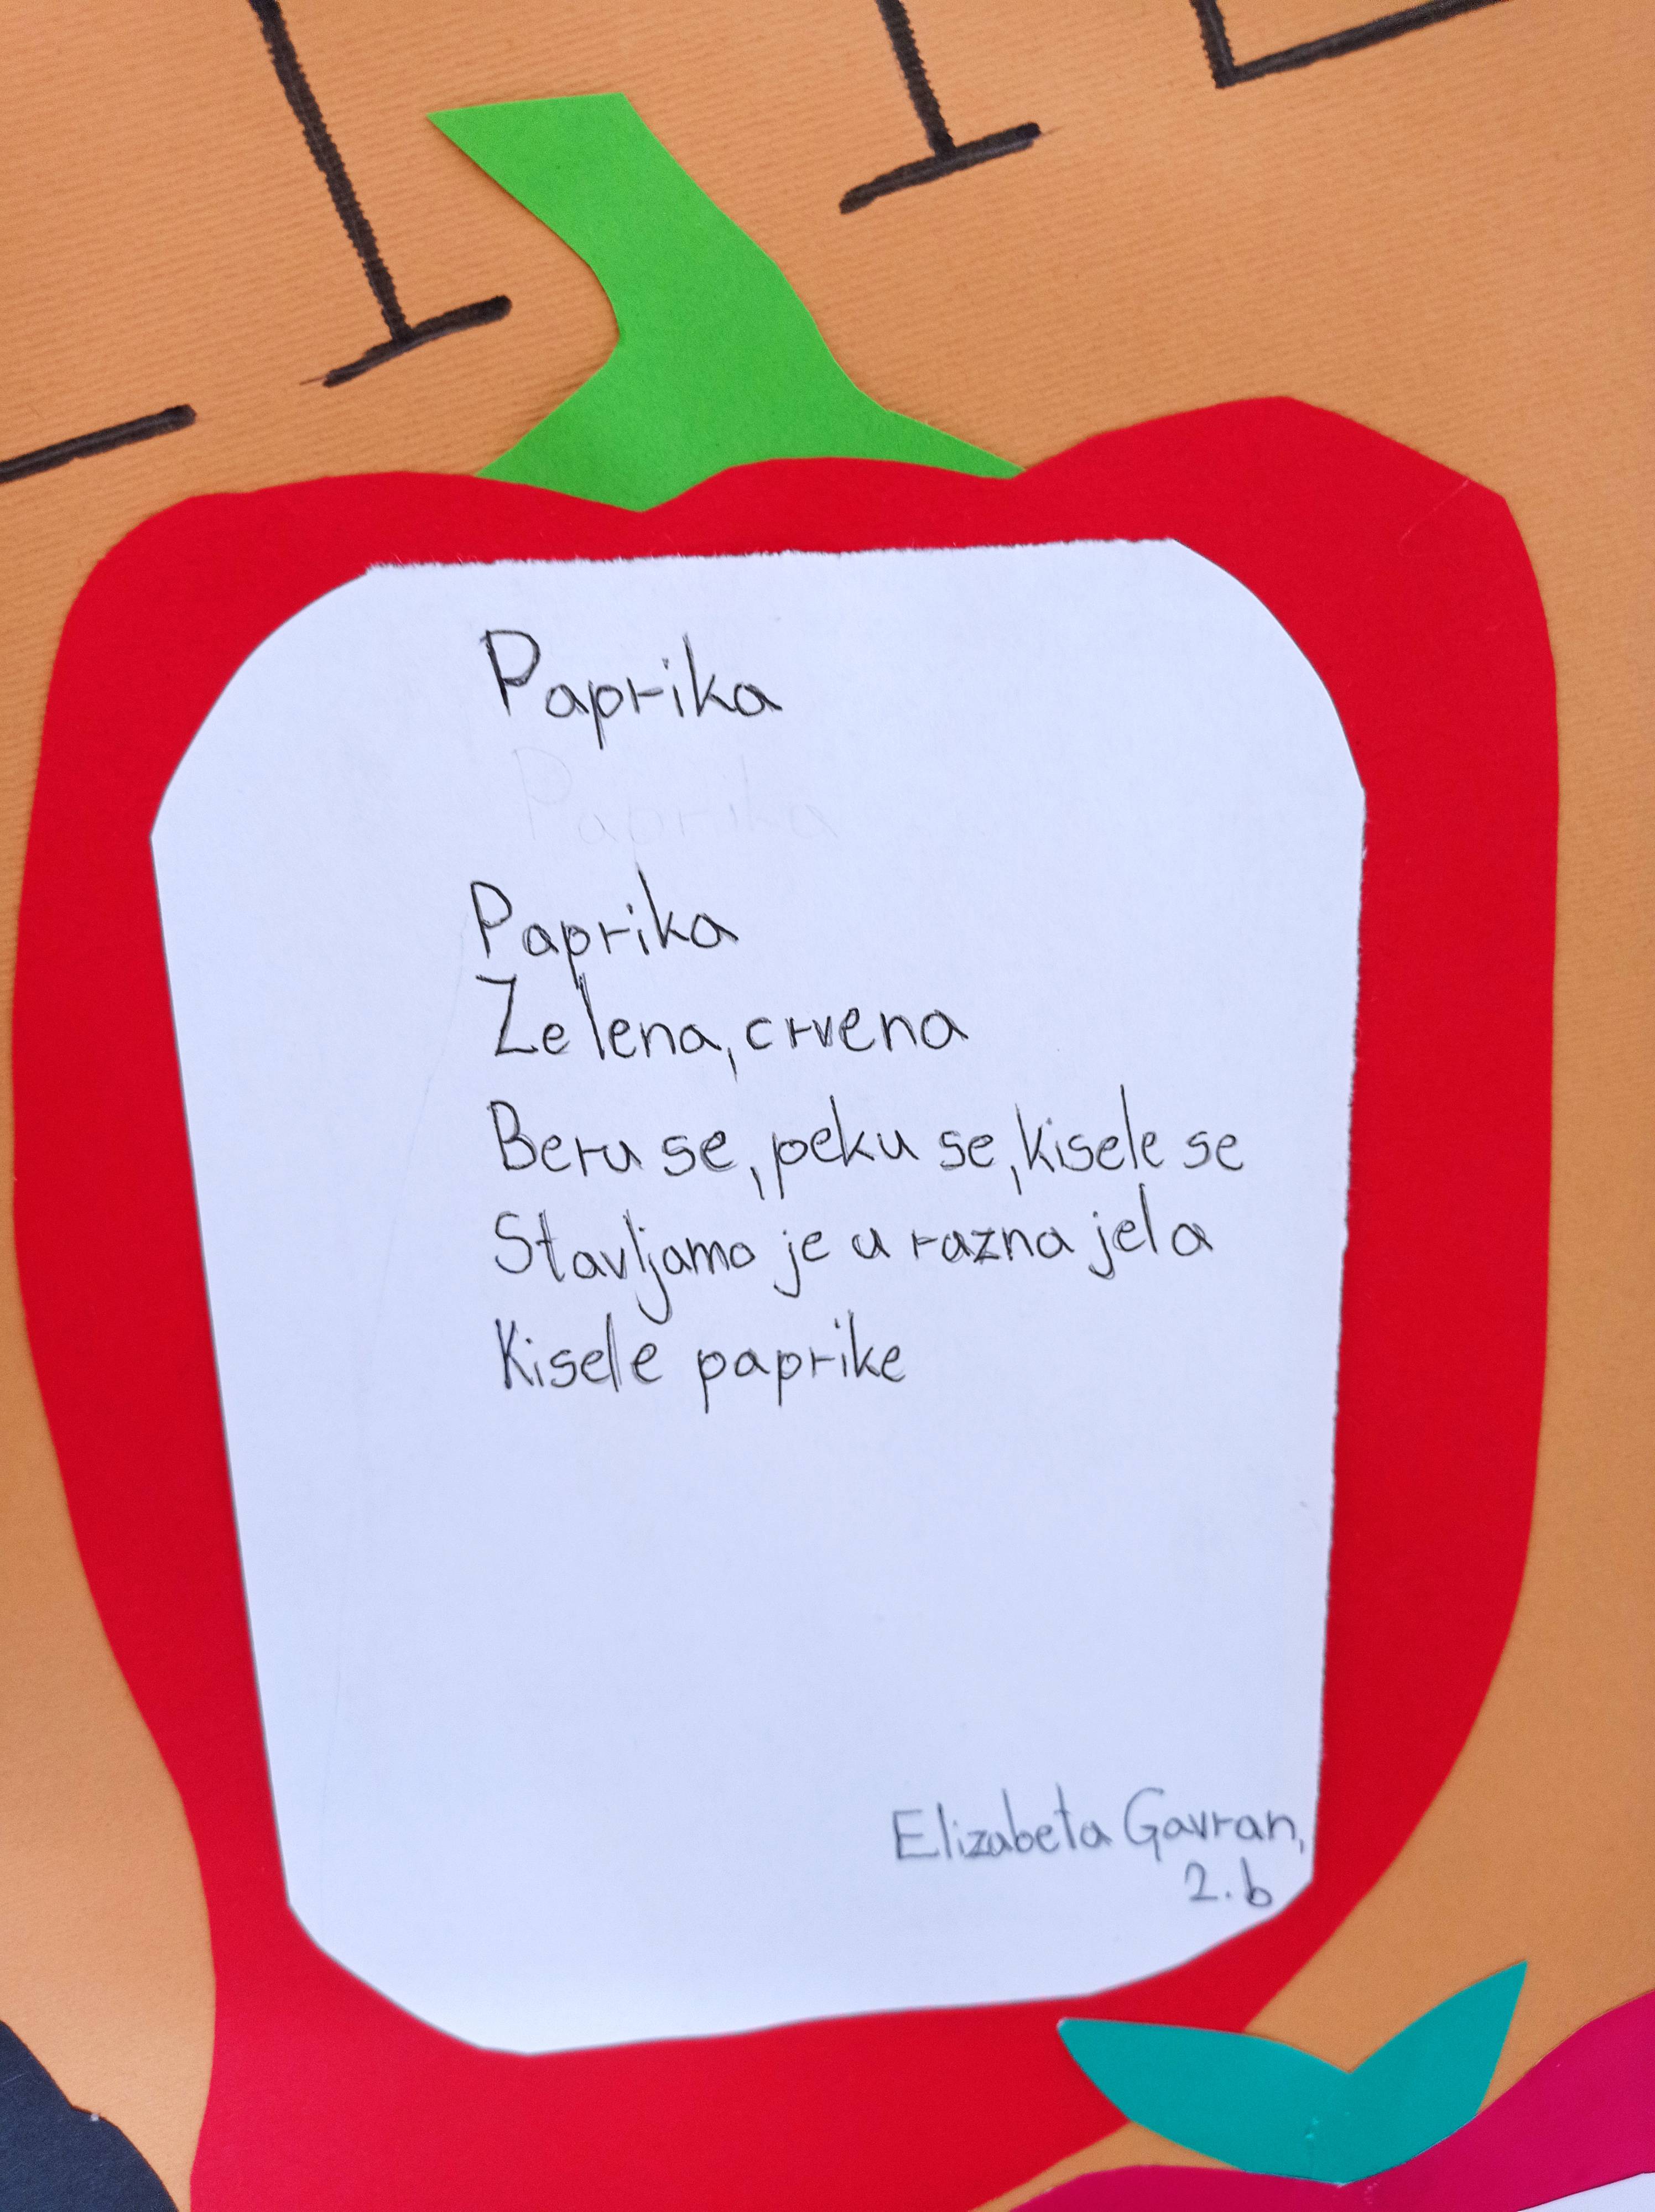 Paprika
Paprika
Paprika
Zelena, crvena
Beru se, peku se, kisele se
Stavljamo je u razna jela
Kisele paprike
Elizabeta Gavran,
2. b